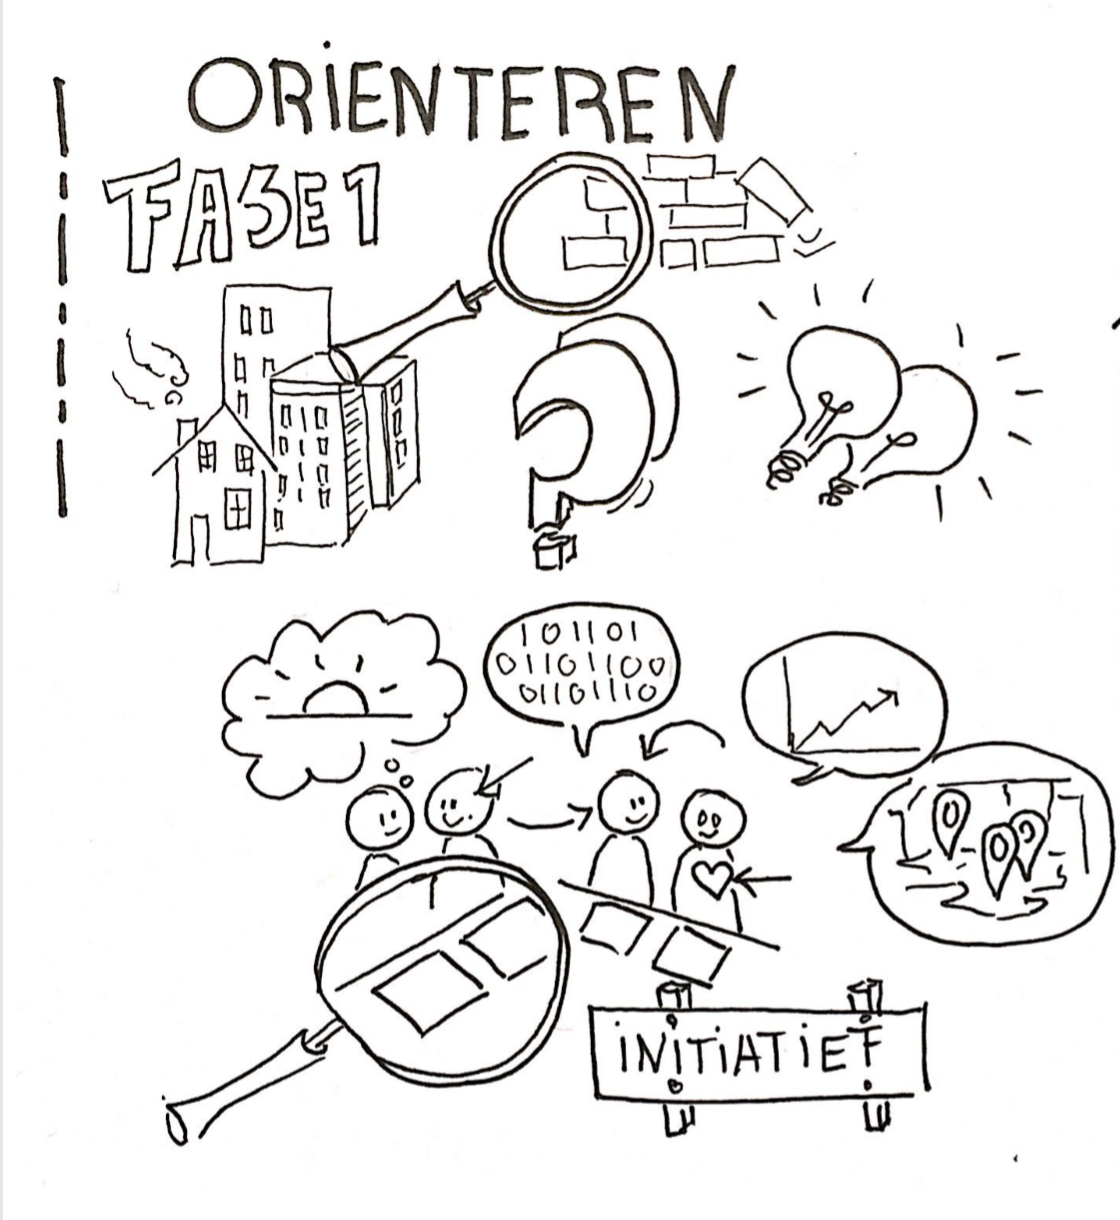 ORIENTEREN
FASE 1
101101
011011000
011011110
INITIATIEF